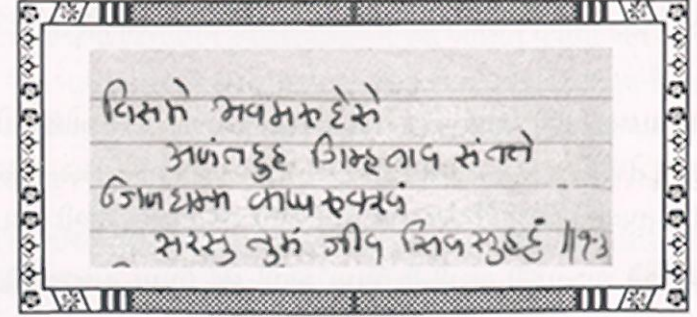 विसमे भवमरुदेसे
अणंतदुह गिम्हताव संतत्ते
जिणधम्म कप्परुक्खं
सरसु तुमं जीव सिवसुहदं ॥१३